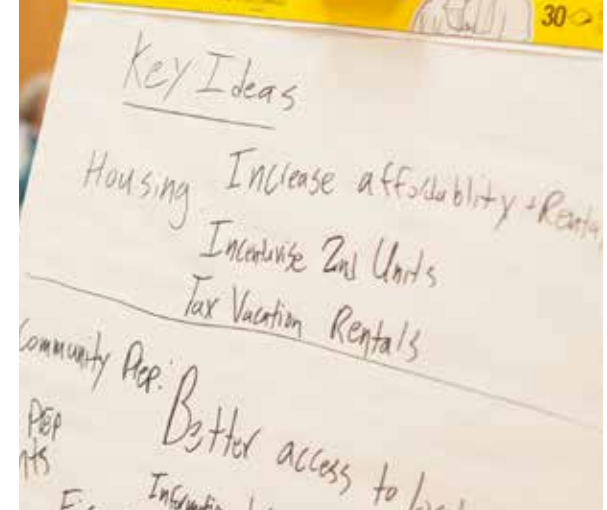 30
Key Ideas
Housing Increase affordablity + Rental
Incentivise 2nd Units
Tax Vacation Rentals
Community Rep:
Better access to